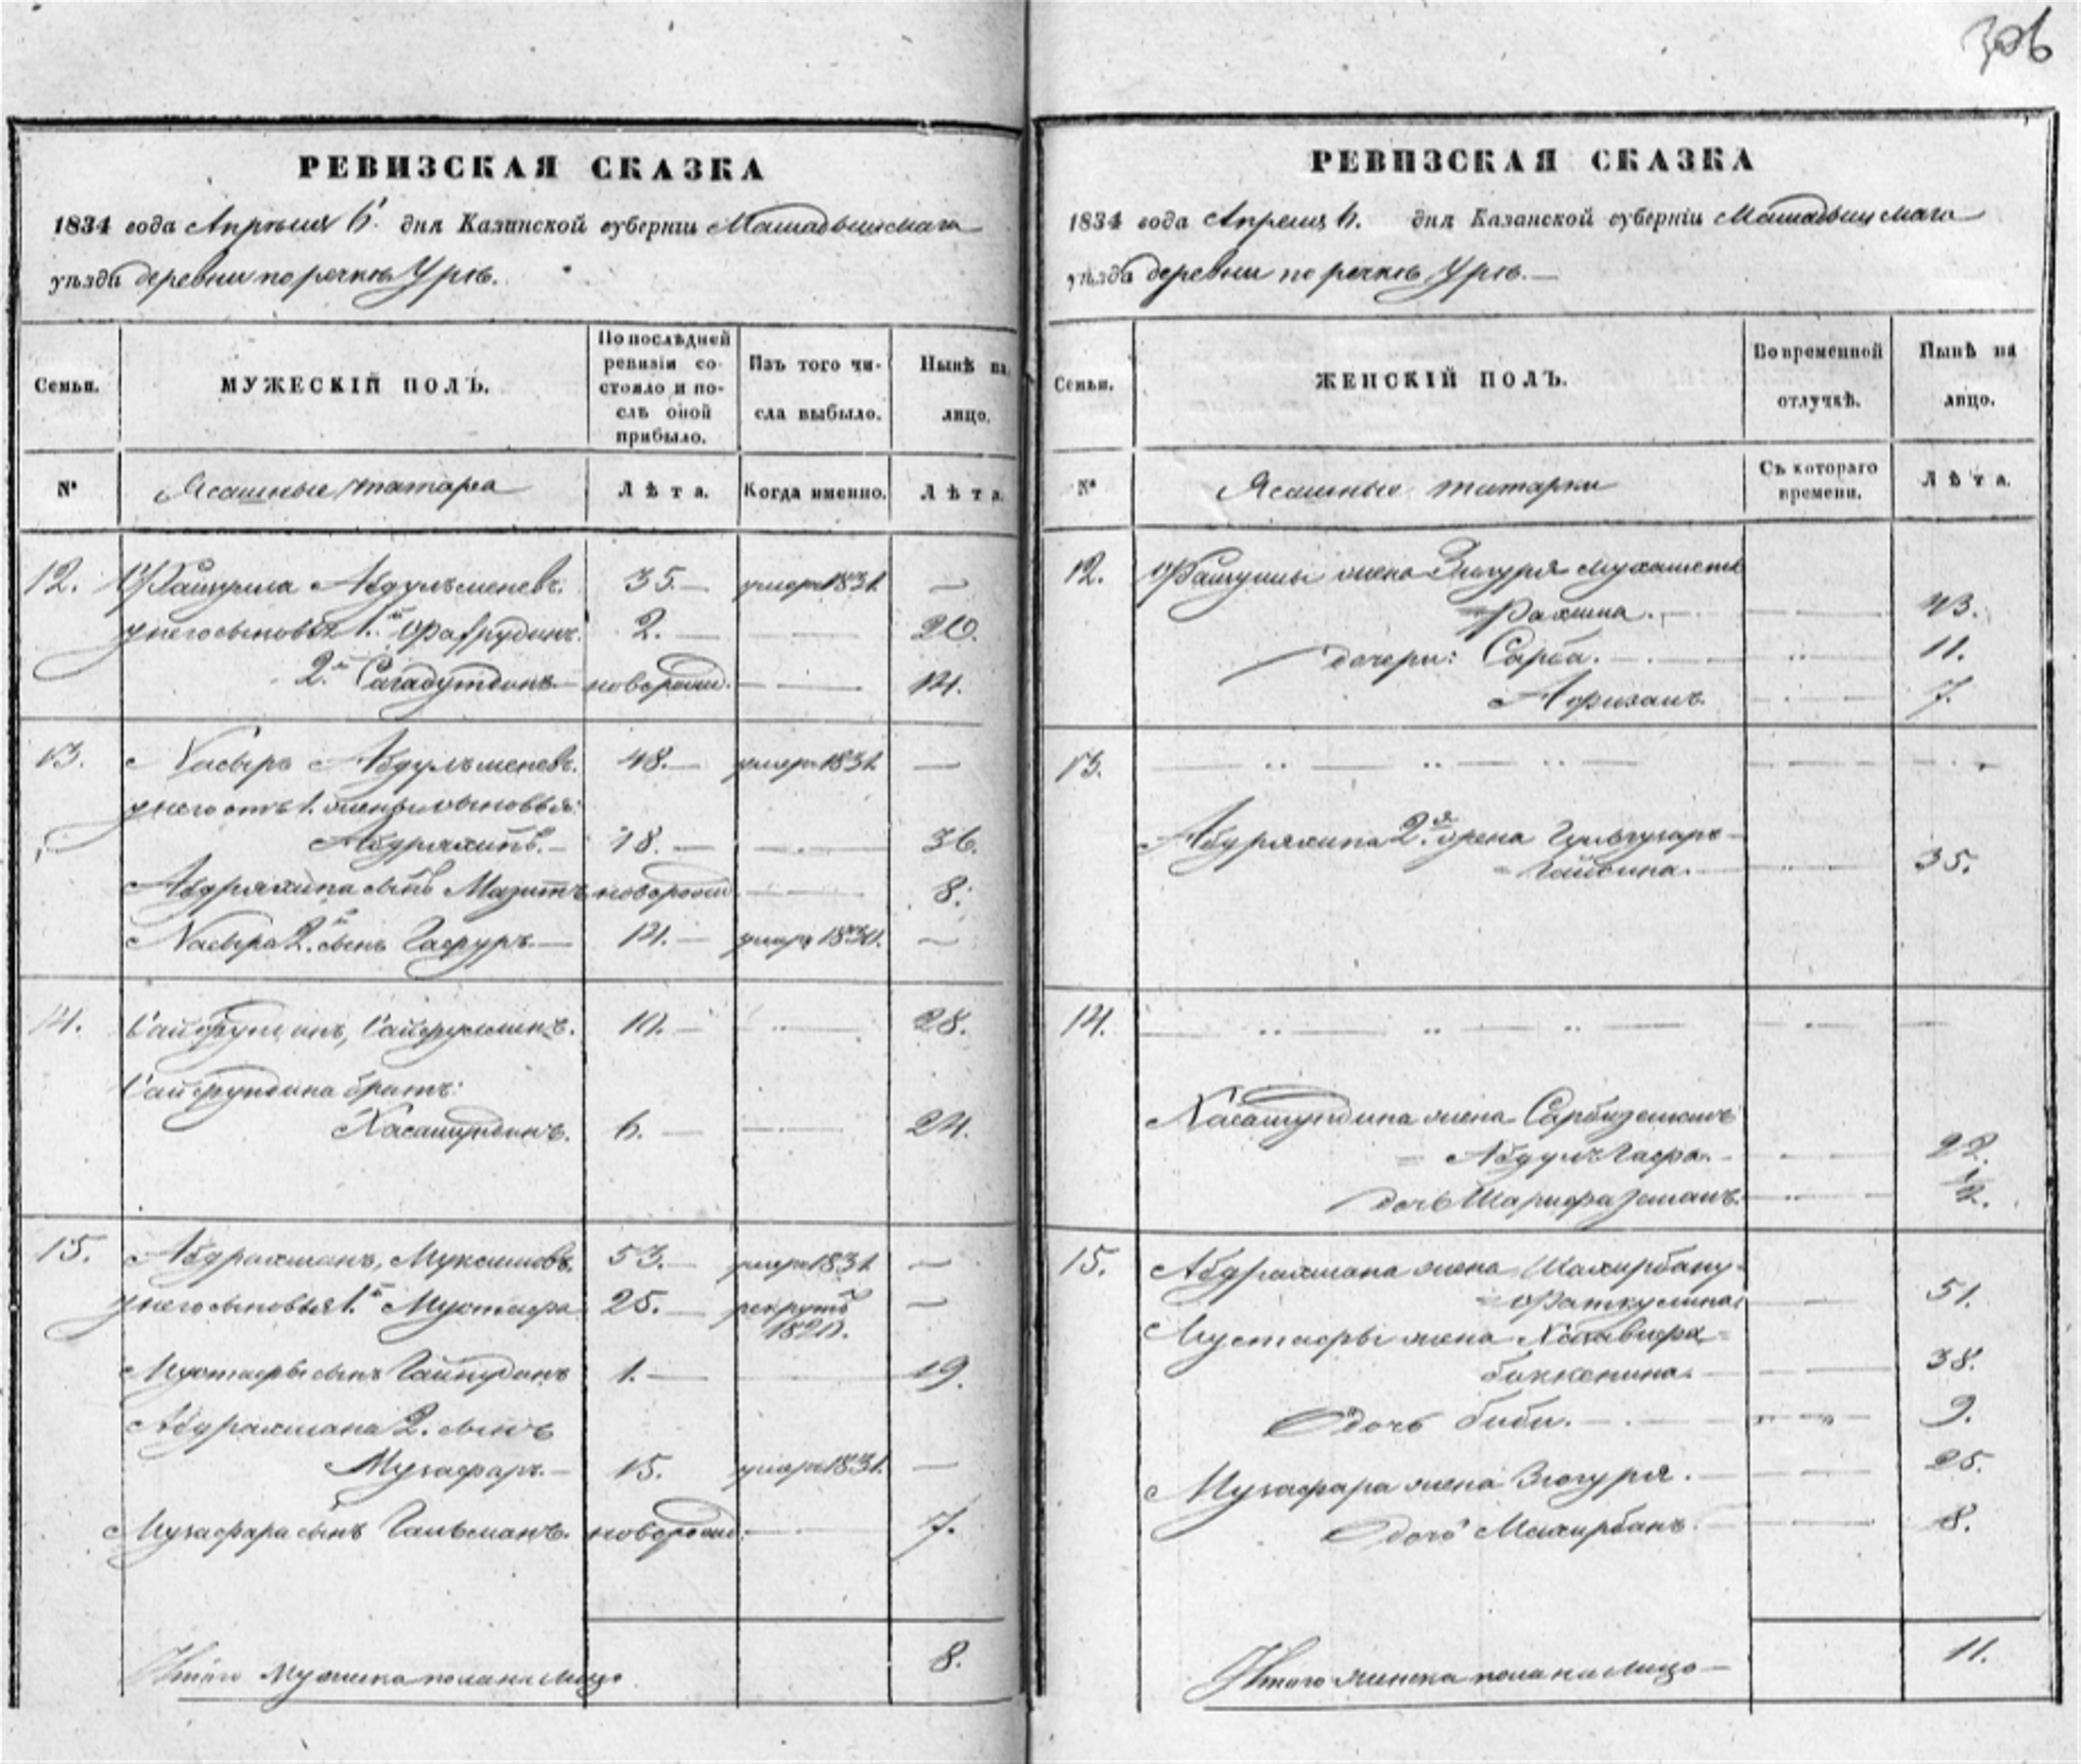 306
РЕВИЗСКАЯ СКАЗКА
1834 года Апреля 6. дня Казанской губерніи Мамадышскаго
уѣзда деревни по речкѣ Урѣ.
Семьи.
МУЖЕСКІЙ ПОЛЪ.
По послѣдней ревизіи состояло и послѣ оной прибыло.
Изъ того числа выбыло.
Нынѣ на лицо.
№
Ясашные татара
Лѣта.
Когда именно.
Лѣта.
12. Абдулъменевъ. 35. — умеръ 1831. —
у него сыновья 1.й 2. — — 20.
2.й Сагадутдинъ — новорожд. — 14.
13. Насыръ Абдулъменевъ. 48. — умеръ 1831. —
у него отъ 1. жены сыновья:
Абдряхимъ. — 18. — — 36.
Абдряхима сынъ Мазитъ новорожд. — 8.
Насыра 2.й сынъ Гафуръ — 14. — умеръ —
14. Сайфутдинъ 10. — — 28.
Сайфутдина братъ:
Хасамутдинъ. 6. — — 24.
15. Абдрахманъ, Муксиновъ. 53. — умеръ 1831 —
у него сыновья 1.й Мустафа 25. — рекрутъ —
Мустафы сынъ Гайнудинъ 1. — — 19.
Абдрахмана 2. сынъ
Музафаръ. — 15. умеръ 1831. —
Музафара сынъ новорожд. — 7.
Итого мужеска пола на лицо 8.
РЕВИЗСКАЯ СКАЗКА
1834 года Апреля 6. дня Казанской губерніи Мамадышскаго
уѣзда деревни по речкѣ Урѣ. —
Семьи.
ЖЕНСКІЙ ПОЛЪ.
Во временной отлучкѣ.
Нынѣ на лицо.
№
Ясашные татарки
Съ котораго времени.
Лѣта.
12. жена Зюгуря
Рахима. — — 43.
дочери: Сарба. — — 11.
Афизанъ. — 7.
13. — — —
Абдряхима 2.я жена
35.
14. — — —
Хасамутдина жена Сарбиземанъ
Абдулъ Гафа. — — 22.
дочь Шарифа Земанъ. — 1/2.
15. Абдрахмана жена Шагирбану
Фаткулина. — 51.
Мустафы жена
биккенина. — — 38.
дочь Биби. — — 9.
Музафара жена Зюгуря. — — 25.
дочь Магирбанъ. — — 8.
Итого женска пола на лицо — 11.